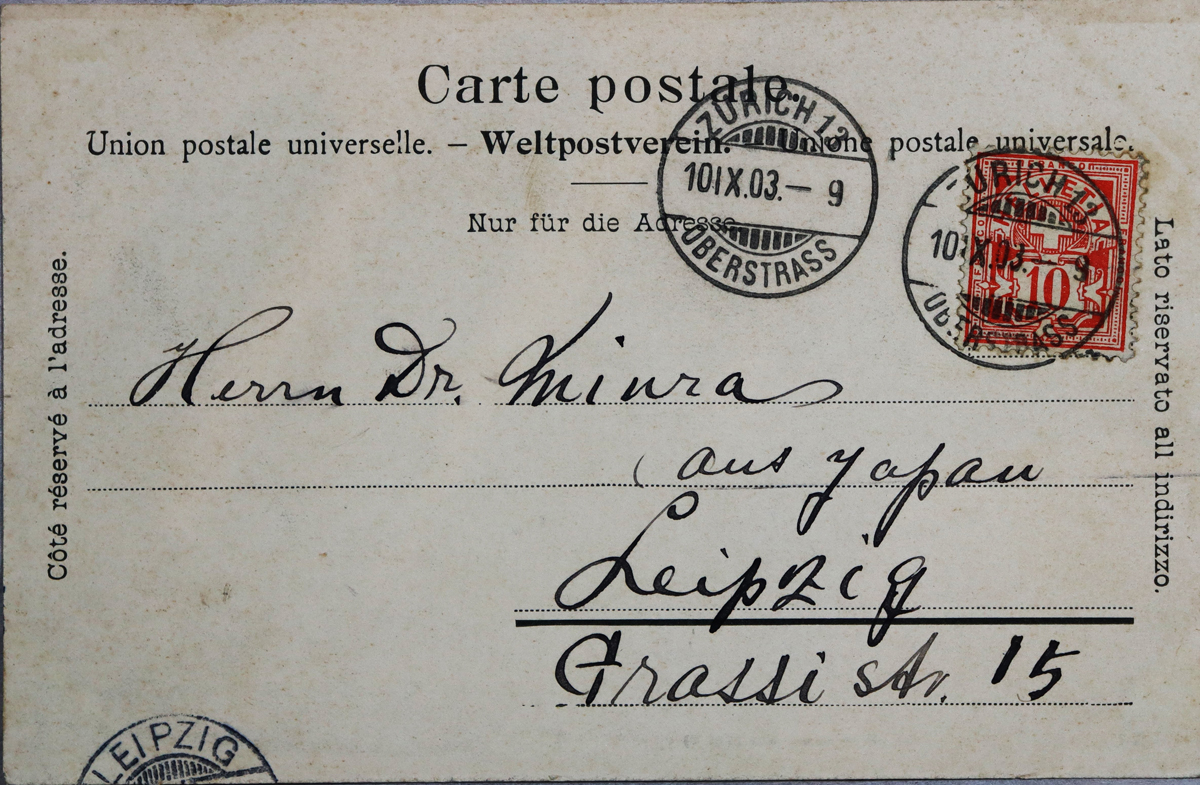 Carte postale.
Union postale universelle. – Weltpostverein. – Unione postale universale.
Nur für die Adresse.
ZÜRICH 13
10 IX.03.– 9
OBERSTRASS
ZÜRICH 13
10 IX.03.– 9
OBERSTRASS
HELVETIA
10
Côté réservé à l'adresse.
Lato riservato all indirizzo.
Herrn Dr. Miura
(aus Japan
Leipzig
Grassi str. 15
LEIPZIG